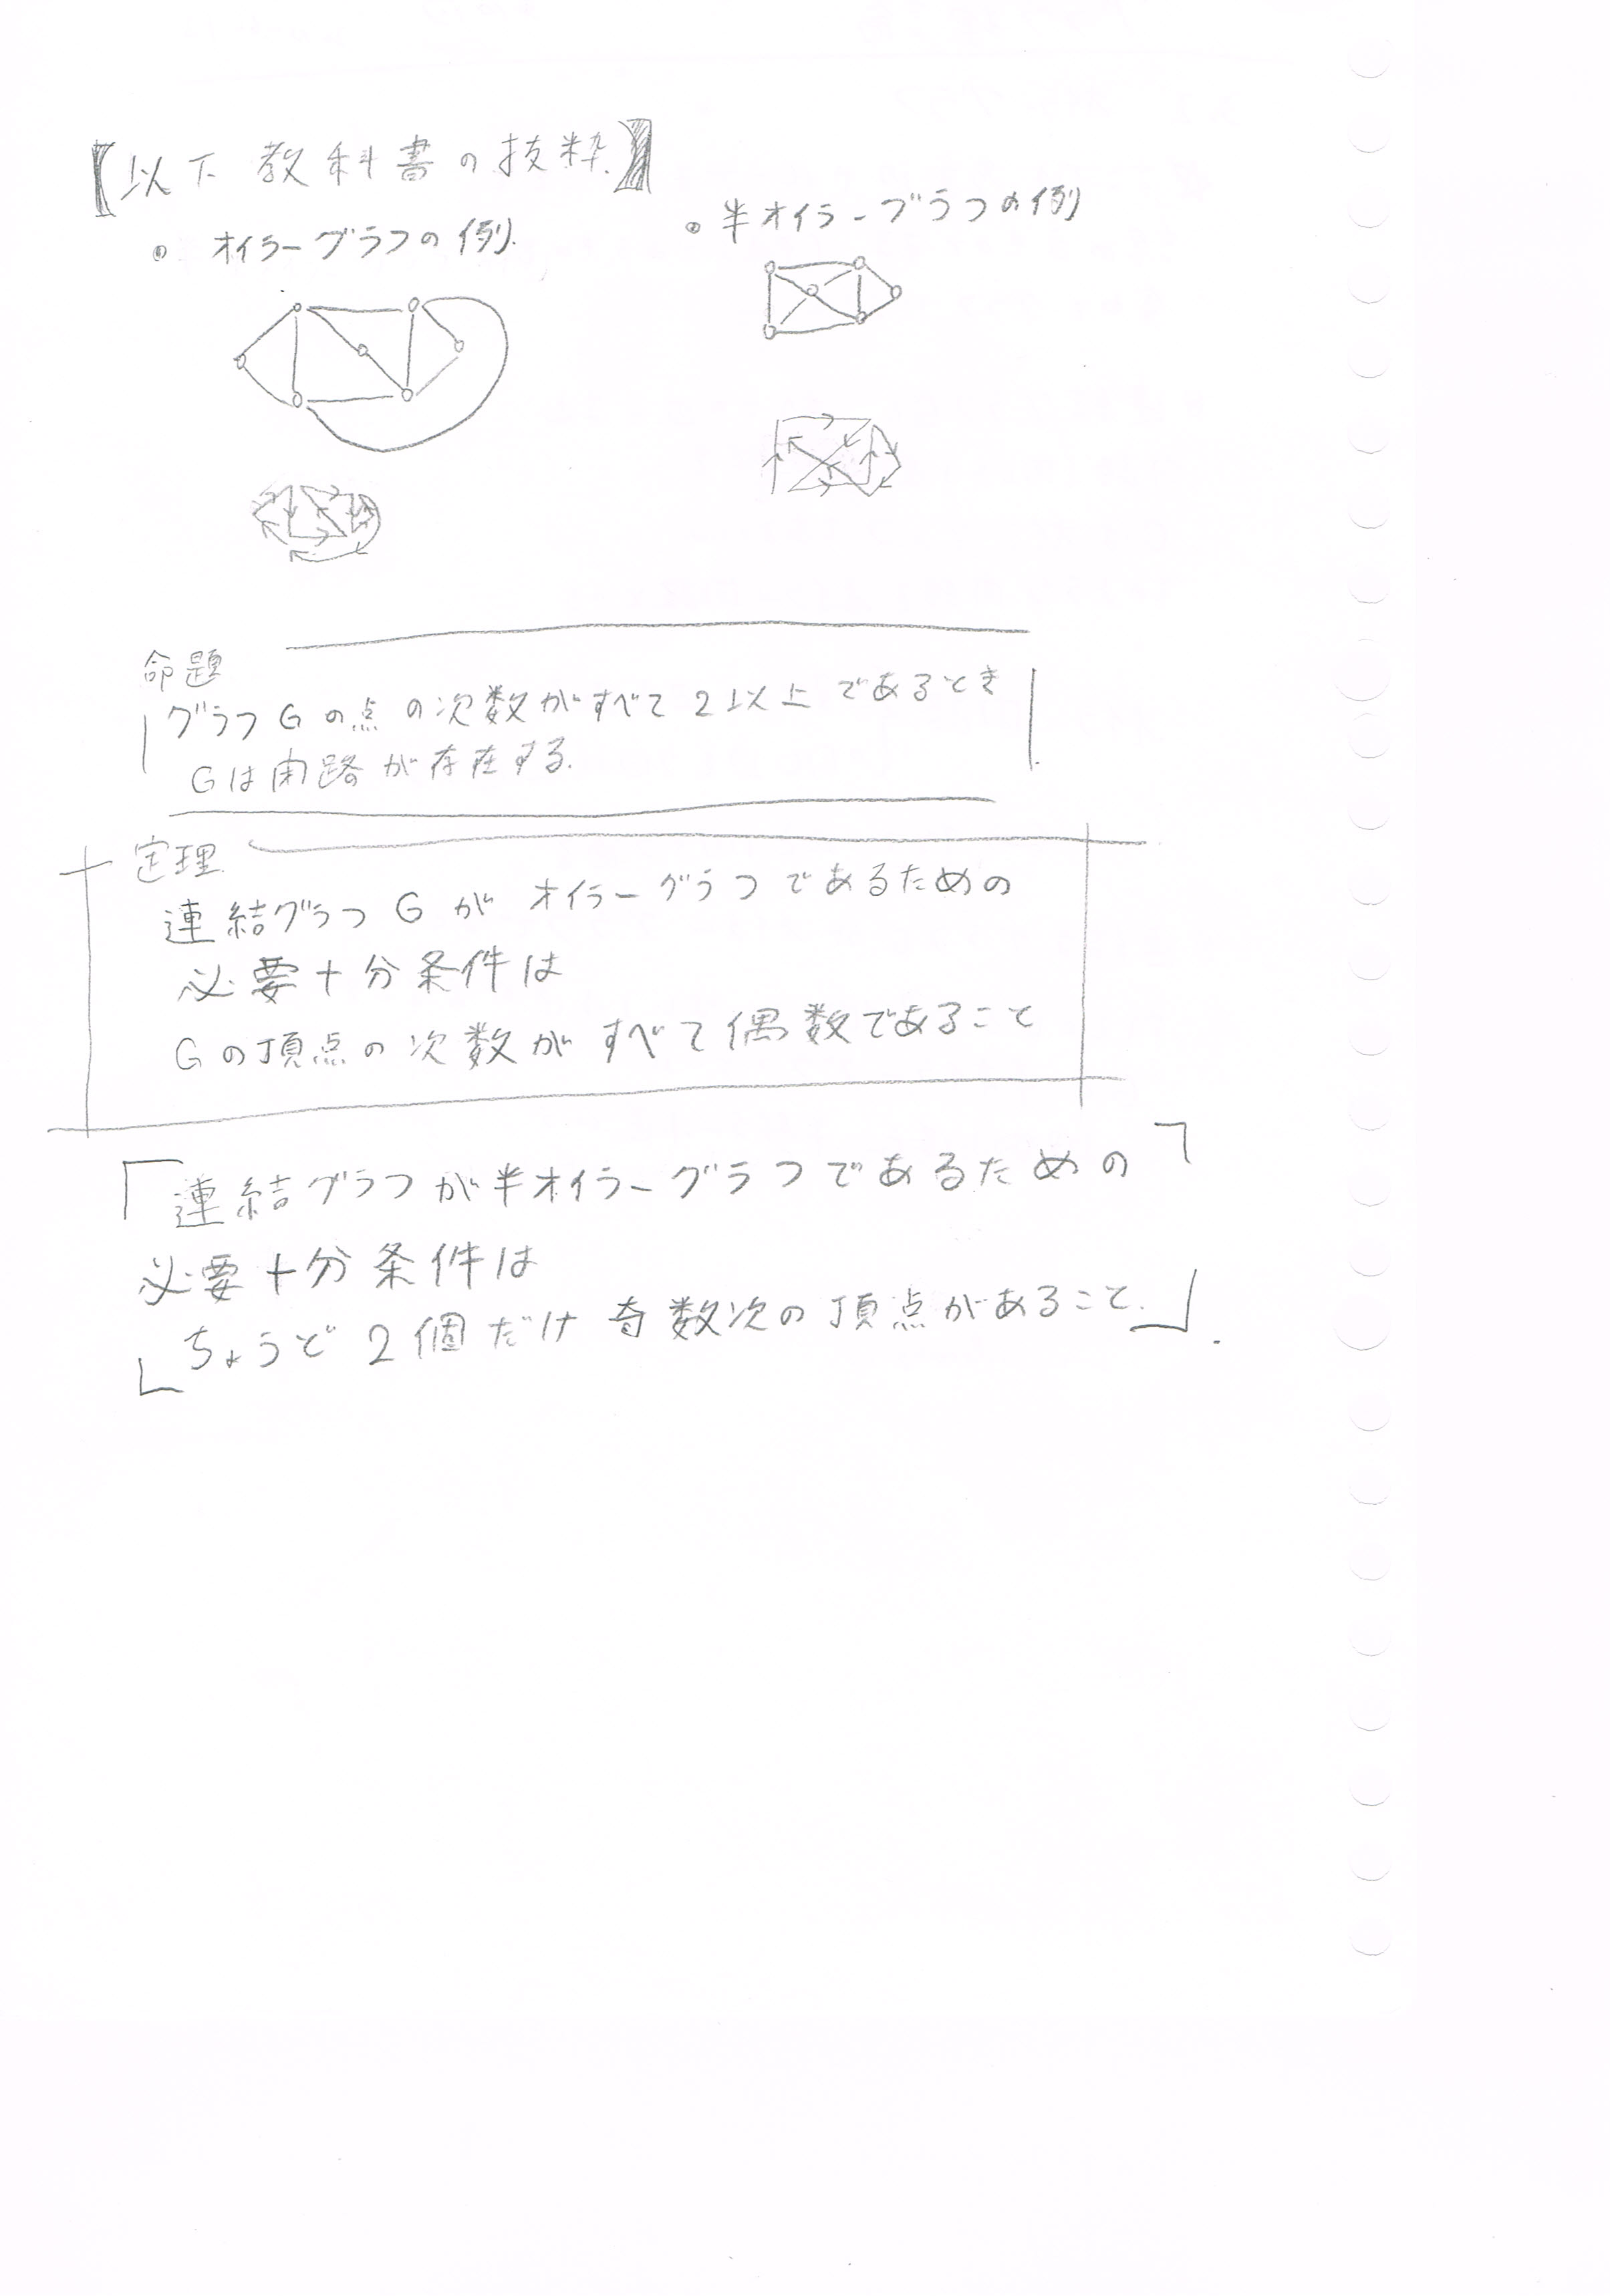 【以下 教科書の抜粋.】
◎ オイラーグラフの例.
◎ 半オイラーグラフの例
命題
グラフGの点の次数がすべて2以上であるとき
Gは閉路が存在する.
定理
連結グラフGがオイラーグラフであるための
必要十分条件は
Gの頂点の次数がすべて偶数であること
「連結グラフが半オイラーグラフであるための
必要十分条件は
ちょうど2個だけ奇数次の頂点があること.」.